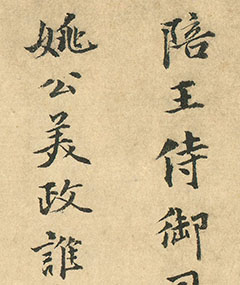 陪王侍御
姚公美政誰